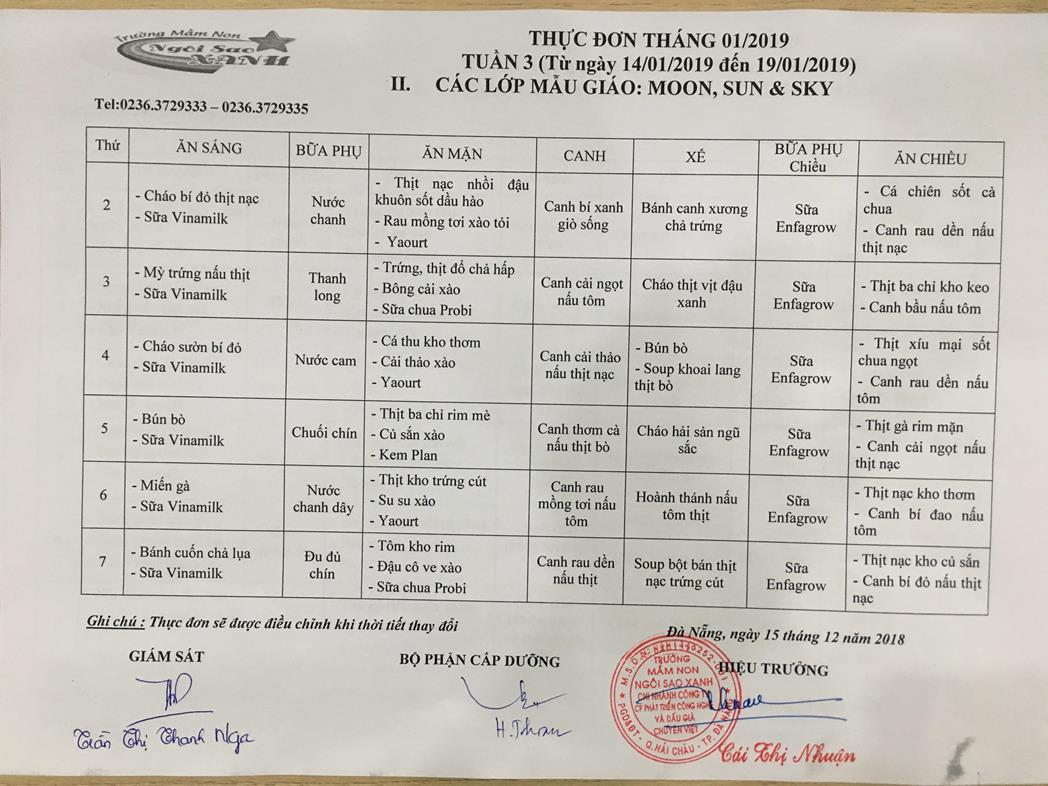 Trường Mầm Non
Ngôi Sao
XANH
Tel:0236.3729333 – 0236.3729335
THỰC ĐƠN THÁNG 01/2019
TUẦN 3 (Từ ngày 14/01/2019 đến 19/01/2019)
II. CÁC LỚP MẪU GIÁO: MOON, SUN & SKY
Thứ
ĂN SÁNG
BỮA PHỤ
ĂN MẶN
CANH
XÉ
BỮA PHỤ
Chiều
ĂN CHIỀU
2
- Cháo bí đỏ thịt nạc
- Sữa Vinamilk
Nước
chanh
- Thịt nạc nhồi đậu
khuôn sốt dầu hào
- Rau mồng tơi xào tỏi
- Yaourt
Canh bí xanh
giò sống
Bánh canh xương
chả trứng
Sữa
Enfagrow
- Cá chiên sốt cà
chua
- Canh rau dền nấu
thịt nạc
3
- Mỳ trứng nấu thịt
- Sữa Vinamilk
Thanh
long
- Trứng, thịt đổ chả hấp
- Bông cải xào
- Sữa chua Probi
Canh cải ngọt
nấu tôm
Cháo thịt vịt đậu
xanh
Sữa
Enfagrow
- Thịt ba chỉ kho keo
- Canh bầu nấu tôm
4
- Cháo sườn bí đỏ
- Sữa Vinamilk
Nước cam
- Cá thu kho thơm
- Cải thảo xào
- Yaourt
Canh cải thảo
nấu thịt nạc
- Bún bò
- Soup khoai lang
thịt bò
Sữa
Enfagrow
- Thịt xíu mại sốt
chua ngọt
- Canh rau dền nấu
tôm
5
- Bún bò
- Sữa Vinamilk
Chuối chín
- Thịt ba chỉ rim mè
- Củ sắn xào
- Kem Plan
Canh thơm cà
nấu thịt bò
Cháo hải sản ngũ
sắc
Sữa
Enfagrow
- Thịt gà rim mặn
- Canh cải ngọt nấu
thịt nạc
6
- Miến gà
- Sữa Vinamilk
Nước
chanh dây
- Thịt kho trứng cút
- Su su xào
- Yaourt
Canh rau
mồng tơi nấu
tôm
Hoành thánh nấu
tôm thịt
Sữa
Enfagrow
- Thịt nạc kho thơm
- Canh bí đao nấu
tôm
7
- Bánh cuốn chả lụa
- Sữa Vinamilk
Đu đủ
chín
- Tôm kho rim
- Đậu cô ve xào
- Sữa chua Probi
Canh rau dền
nấu thịt
Soup bột bán thịt
nạc trứng cút
Sữa
Enfagrow
- Thịt nạc kho củ sắn
- Canh bí đỏ nấu thịt
nạc
Ghi chú : Thực đơn sẽ được điều chỉnh khi thời tiết thay đổi
Đà Nẵng, ngày 15 tháng 12 năm 2018
GIÁM SÁT
BỘ PHẬN CẤP DƯỠNG
HIỆU TRƯỞNG
TRƯỜNG
MẦM NON
NGÔI SAO XANH
CHI NHÁNH CÔNG TY
CP PHÁT TRIỂN CÔNG NGHỆ
VÀ ĐẤU GIÁ
CHUYÊN VIỆT
Q. HẢI CHÂU - TP. ĐÀ NẴNG
Trần Thị Thanh Nga
Cái Thị Nhuận